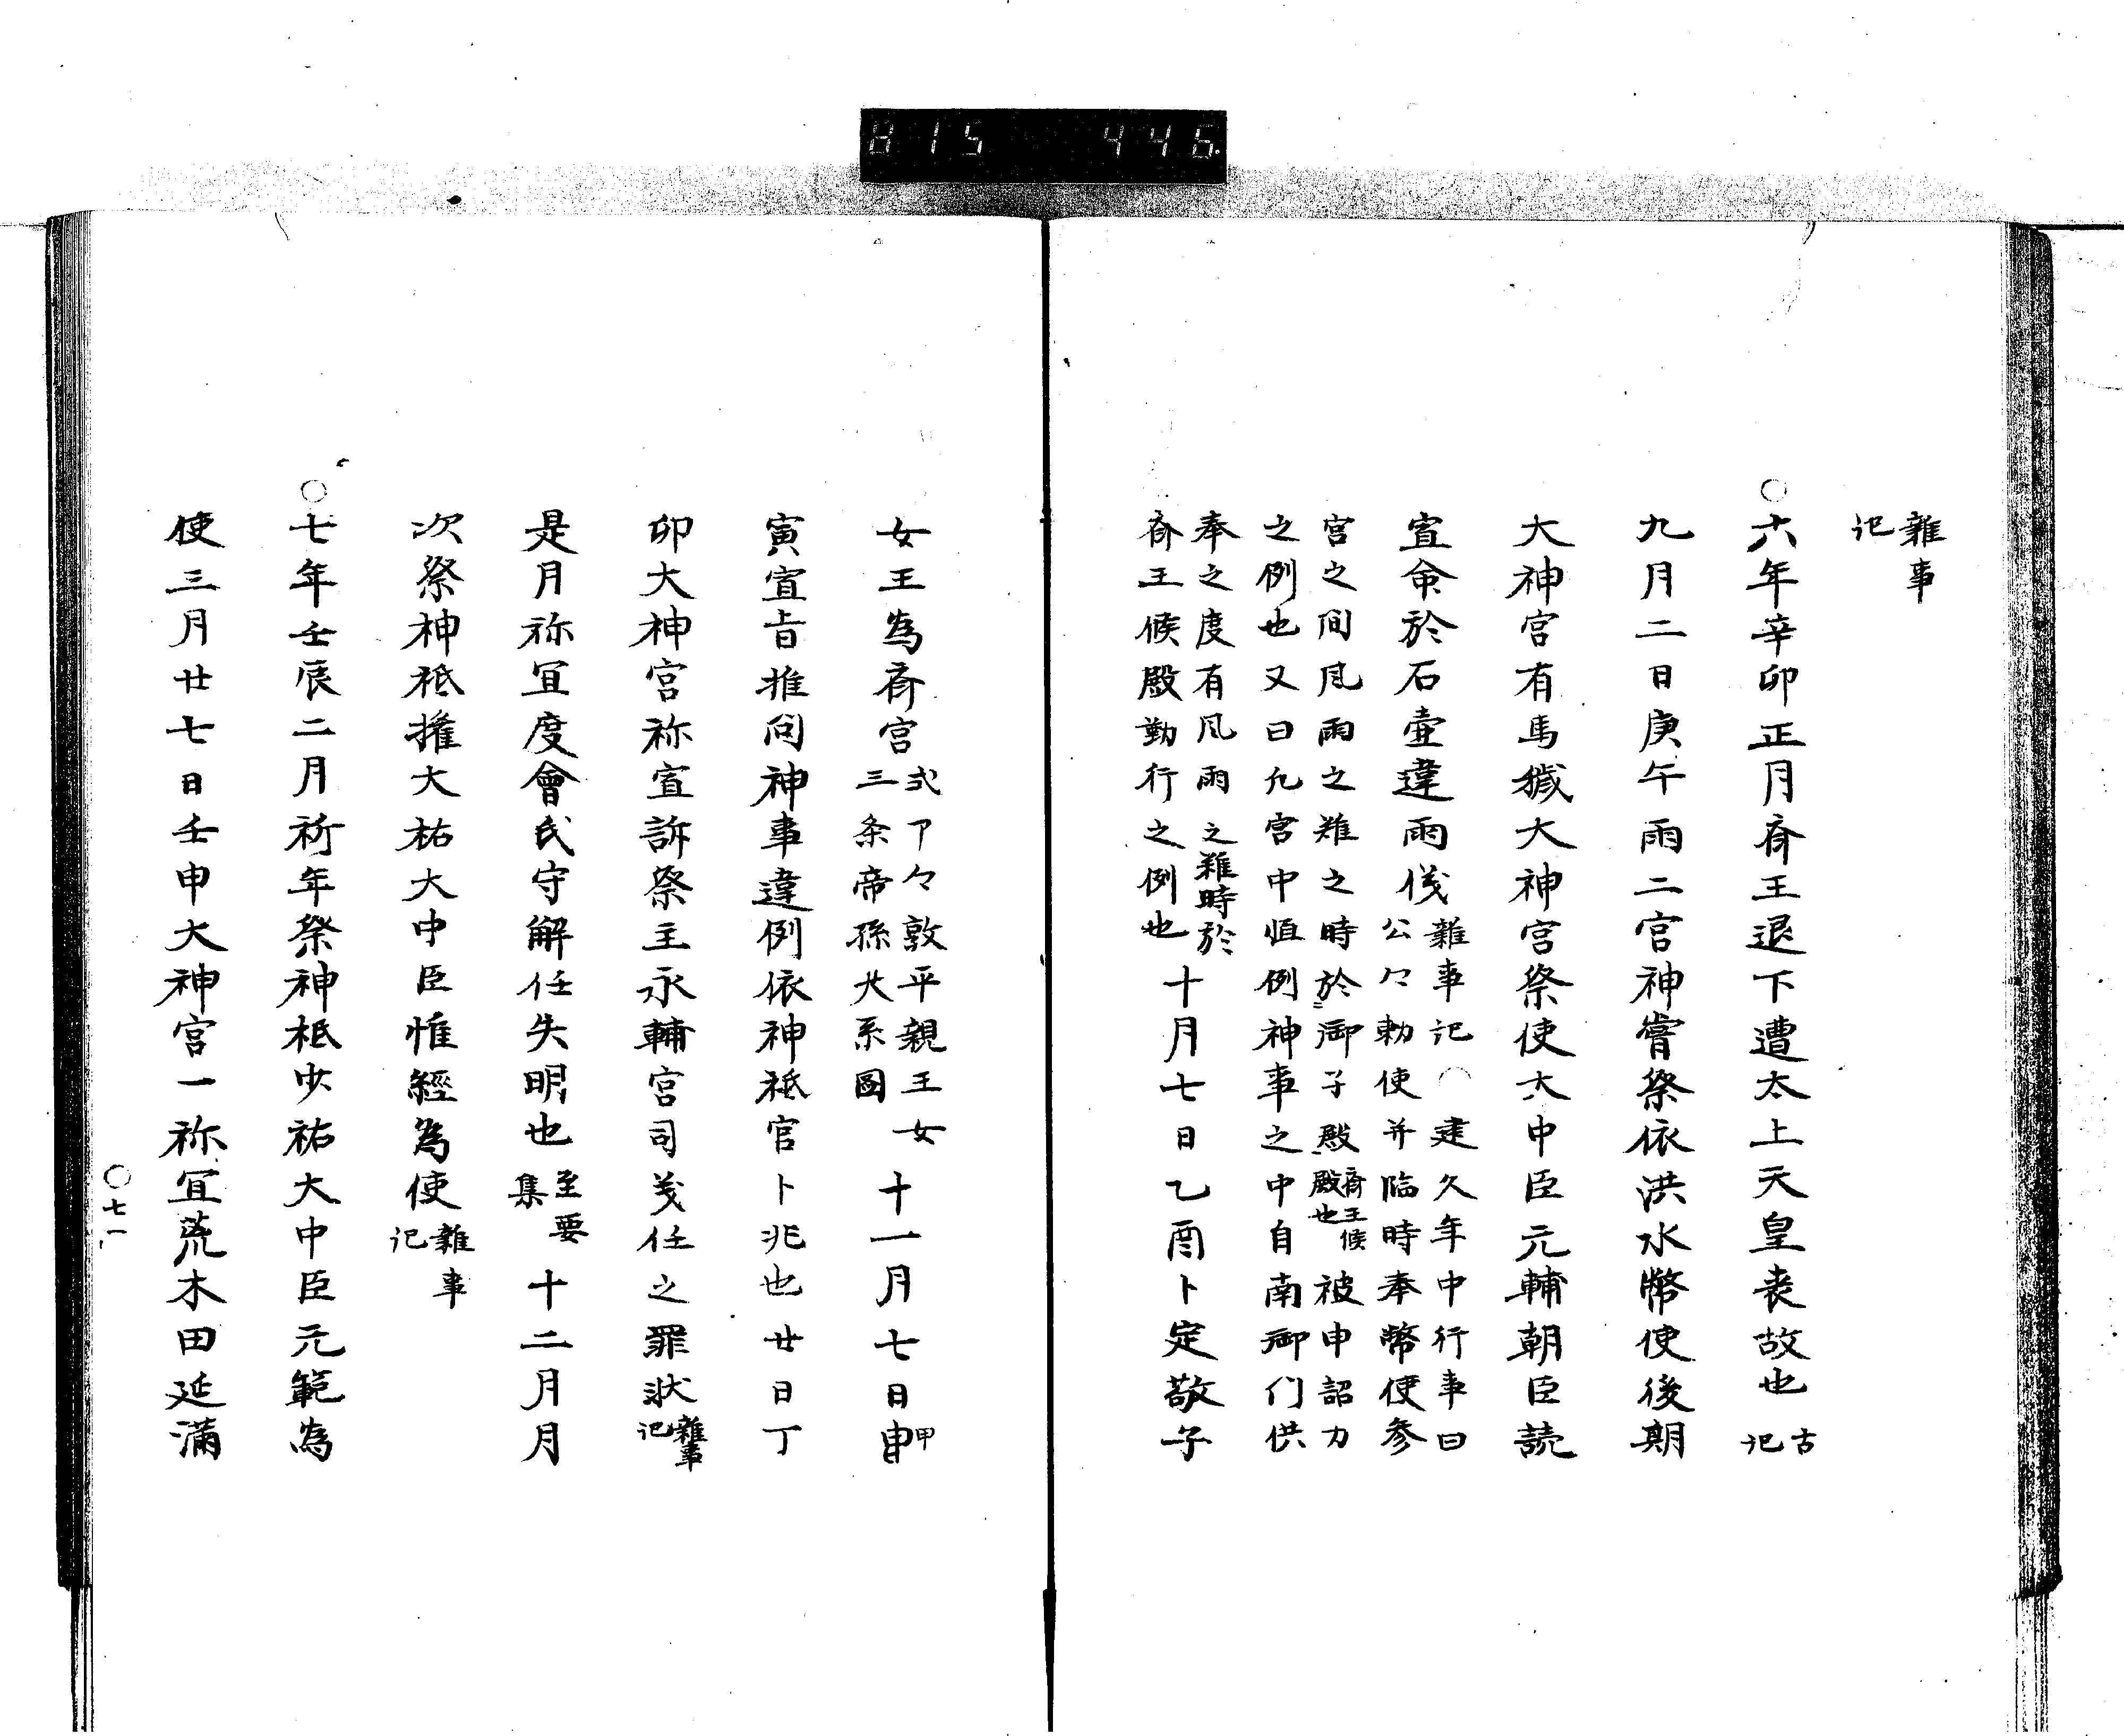 815 446.
雜事
记
○六年辛卯正月斎王退下遭太上天皇丧故也古
记
九月二日庚午雨二宮神嘗祭依洪水幣使後期
大神宮有馬穢大神宮祭使大中臣元輔朝臣読
宣命於石壷違雨儀雜事记○建久年中行事曰
公々勅使并臨時奉幣使参
宮之间風雨之難之時於御子殿斎王候
殿也被申詔刀
之例也又曰凡宮中恒例神事之中自南御门供
奉之度有風雨之難時於
斎王候殿勤行之例也十月七日乙酉卜定敬子
女王為斎宮式了々敦平親王女
三条帝孫大系圖十一月七日甲申
寅宣旨推问神事違例依神祇官卜兆也廿日丁
卯大神宮祢宣訴祭主永輔宮司義任之罪状雜事
记
是月祢宜度會氏守解任失明也至要
集十二月月
次祭神祇権大祐大中臣惟經為使雜事
记
○七年壬辰二月祈年祭神祇少祐大中臣元範為
使三月廿七日壬申大神宮一祢宜荒木田延満
○七一